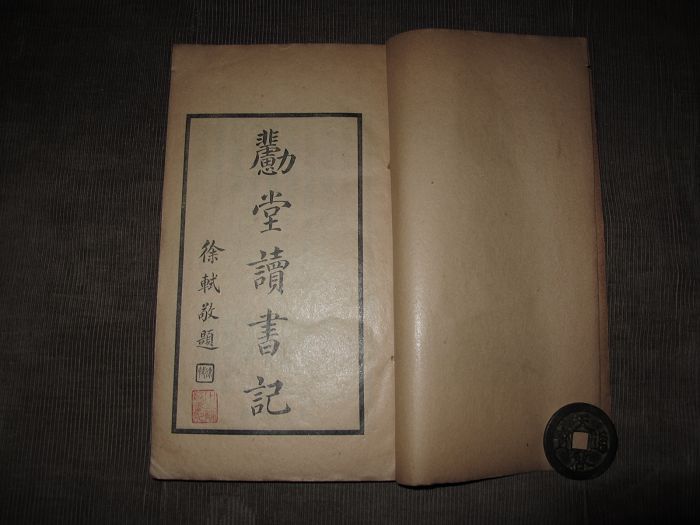 勴堂讀書記
徐軾敬題